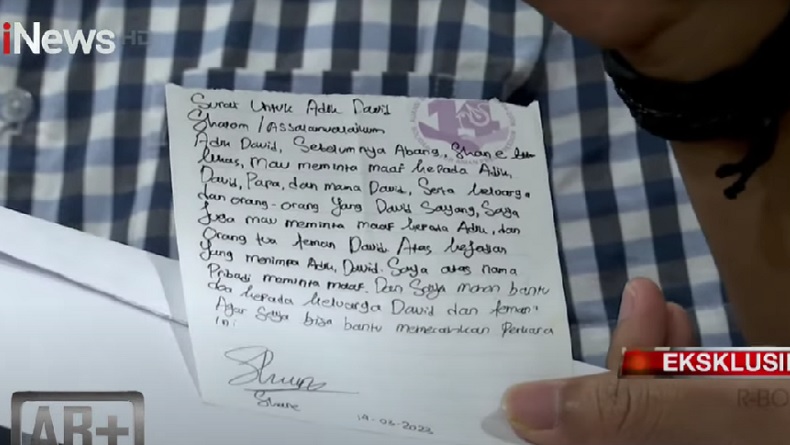 iNews HD
Surat Untuk Adik David
Shalom / Assalamualaikum
Adik David, Sebelumnya Abang, Shane
lukas, Mau meminta maaf kepada Adik
David, Papa, dan mama David, Serta keluarga
dan orang-orang Yang David Sayang, Saya
Juga mau meminta maaf kepada Adik, dan
Orang tua teman David Atas kejadian
Yang menimpa Adik, David. Saya atas nama
Pribadi meminta maaf. Dan Saya mohon bantu
doa kepada keluarga David dan teman"
Agar Saya bisa bantu memecahkan Perkara
ini.
Shane
19-03-2023
EKSKLUSI
R-BO
AR+